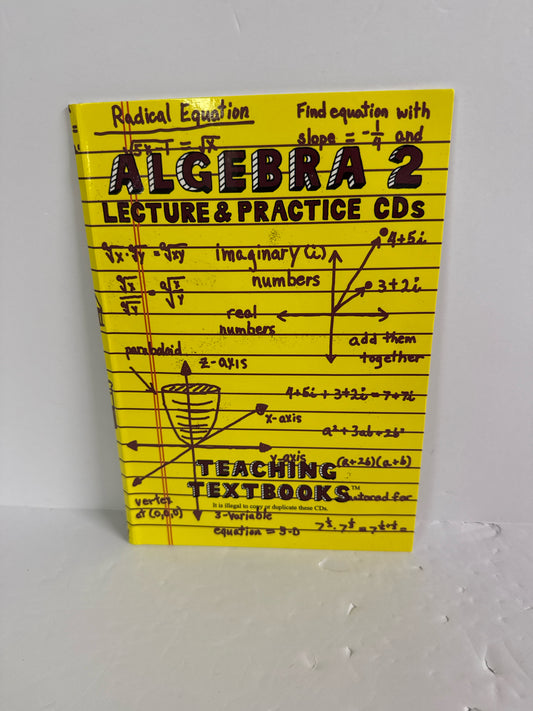 Radical Equation
Find equation with
slope = -1/4 and
√5x-1 = √x
ALGEBRA 2
LECTURE & PRACTICE CDs
imaginary (i)
numbers
4+5i
3+2i
real
numbers
add them
together
paraboloid
z-axis
x-axis
y-axis
4+5i + 3+2i = 7+7i
a² + 3ab + 2b²
(a+2b)(a+b)
TEACHING
TEXTBOOKS™
It is illegal to copy or duplicate these CDs.
vertex
at (0,0,0)
3-variable
equation = 3-D